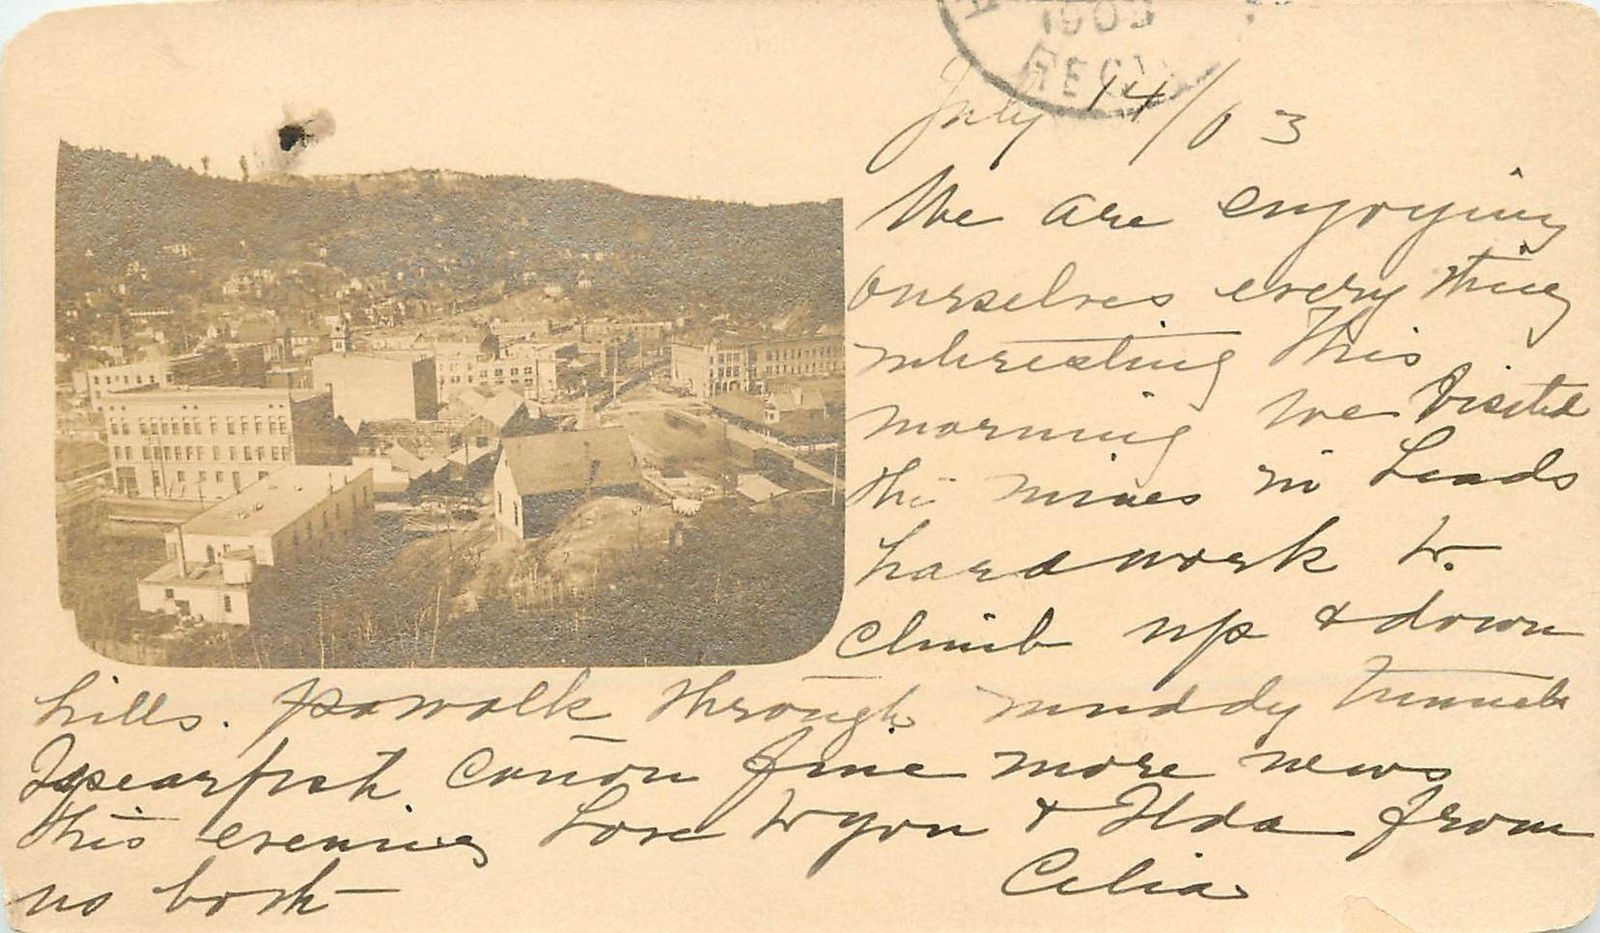 1903
REC'D
July 14/03
We are enjoying
ourselves every thing
interesting This
morning we Visited
the mines in Leads
hard work to
climb up & down
hills. walk through muddy tunnels
Spearfish Canon fine more news
this evening Love to you & Ilda from
us both Celia